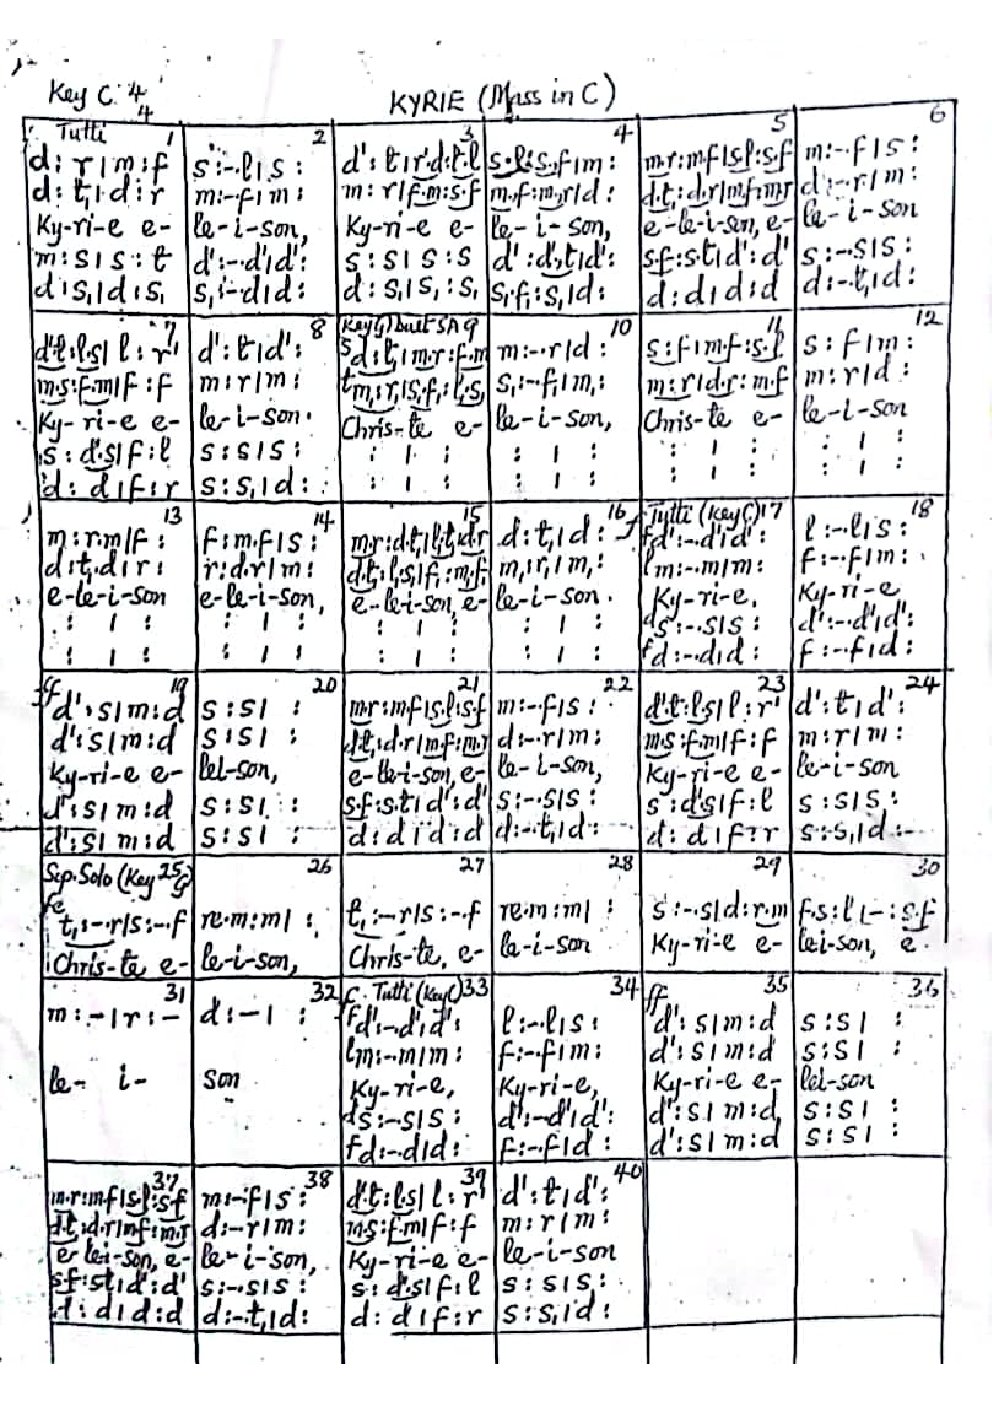 Key C. 4/4
KYRIE (Mass in C)
Tutti 1 2 3 4 5 6
d : r | m : f   s :-.l | s :   d' : t | r'.d' : t.l   s.l : s.f | m :   m.r : m.f | s.l : s.f   m :-.f | s :
d : t, | d : r   m :-.f | m :   m : r | f.m : s.f   m.f : m.r | d :   d.t, : d.r | m.f : m.r   d :-.r | m :
Ky-ri-e e-   le-i-son,   Ky-ri-e e-   le-i-son,   e-le-i-son, e-   le-i-son
m : s | s : t   d' :-.d' | d' :   s : s | s : s   d' : d'.t | d' :   s.f : s.t | d' : d'   s :-.s | s :
d : s, | d : s,   s, :-.d | d :   d : s, | s, : s,   s,.f, : s, | d :   d : d | d : d   d :-.t, | d :
7 8 Key G Duet SA 9 10 11 12
d'.t : l.s | l : r'   d' : t | d' :   s d : t, | m.r : f.m   m :-.r | d :   s : f | m.f : s.l   s : f | m :
m.s : f.m | f : f   m : r | m :   t m, : r, | s,.f, : l,.s,   s, :-.f, | m, :   m : r | d.r : m.f   m : r | d :
Ky-ri-e e-   le-i-son.   Chris-te e-   le-i-son,   Chris-te e-   le-i-son
s : d'.s | f : l   s : s | s :   : | :   : | :   : | :   : | :
d : d | f : r   s : s, | d :   : | :   : | :   : | :   : | :
13 14 15 16 f Tutti (Key C) 17 18
m : r.m | f :   f : m.f | s :   m.r : d.t, | l,.t, : d.r   d : t, | d :   f d' :-.d' | d' :   l :-.l | s :
d : t,.d | r :   r : d.r | m :   d.t, : l,.s, | f, : m,.f,   m, : r, | m, :   l m :-.m | m :   f :-.f | m :
e-le-i-son   e-le-i-son,   e-le-i-son, e-   le-i-son.   Ky-ri-e,   Ky-ri-e
: | :   : | :   : | :   : | :   d s :-.s | s :   d' :-.d' | d' :
: | :   : | :   : | :   : | :   f d :-.d | d :   f :-.f | d :
ff 19 20 21 22 23 24
d' : s | m : d   s : s | :   m.r : m.f | s.l : s.f   m :-.f | s :   d'.t : l.s | l : r'   d' : t | d' :
d' : s | m : d   s : s | :   d.t, : d.r | m.f : m.r   d :-.r | m :   m.s : f.m | f : f   m : r | m :
Ky-ri-e e-   lei-son,   e-le-i-son, e-   le-i-son,   Ky-ri-e e-   le-i-son
d' : s | m : d   s : s | :   s.f : s.t | d' : d'   s :-.s | s :   s : d'.s | f : l   s : s | s :
d' : s | m : d   s : s | :   d : d | d : d   d :-.t, | d :   d : d | f : r   s : s, | d :-
Sop. Solo (Key G) 25 26 27 28 29 30
fe t, :-.r | s :-.f   re.m : m | :   t, :-.r | s :-.f   re.m : m | :   s :-.s | d : r.m   f.s : l | - : s.f
Chris-te e-   le-i-son,   Chris-te, e-   le-i-son   Ky-ri-e e-   lei-son, e-
31 32 f. Tutti (Key C) 33 34 ff 35 36
m : - | r : -   d : - | :   f d' :-.d' | d' :   l :-.l | s :   d' : s | m : d   s : s | :
l m :-.m | m :   f :-.f | m :   d' : s | m : d   s : s | :
le- i-   son   Ky-ri-e,   Ky-ri-e,   Ky-ri-e e-   lei-son
d s :-.s | s :   d' :-.d' | d' :   d' : s | m : d   s : s | :
f d :-.d | d :   f :-.f | d :   d' : s | m : d   s : s | :
37 38 39 40
m.r : m.f | s.l : s.f   m :-.f | s :   d'.t : l.s | l : r'   d' : t | d' :
d.t, : d.r | m.f : m.r   d :-.r | m :   m.s : f.m | f : f   m : r | m :
e-lei-son, e-   le-i-son,   Ky-ri-e e-   le-i-son
s.f : s.t | d' : d'   s :-.s | s :   s : d'.s | f : l   s : s | s :
d : d | d : d   d :-.t, | d :   d : d | f : r   s : s, | d :